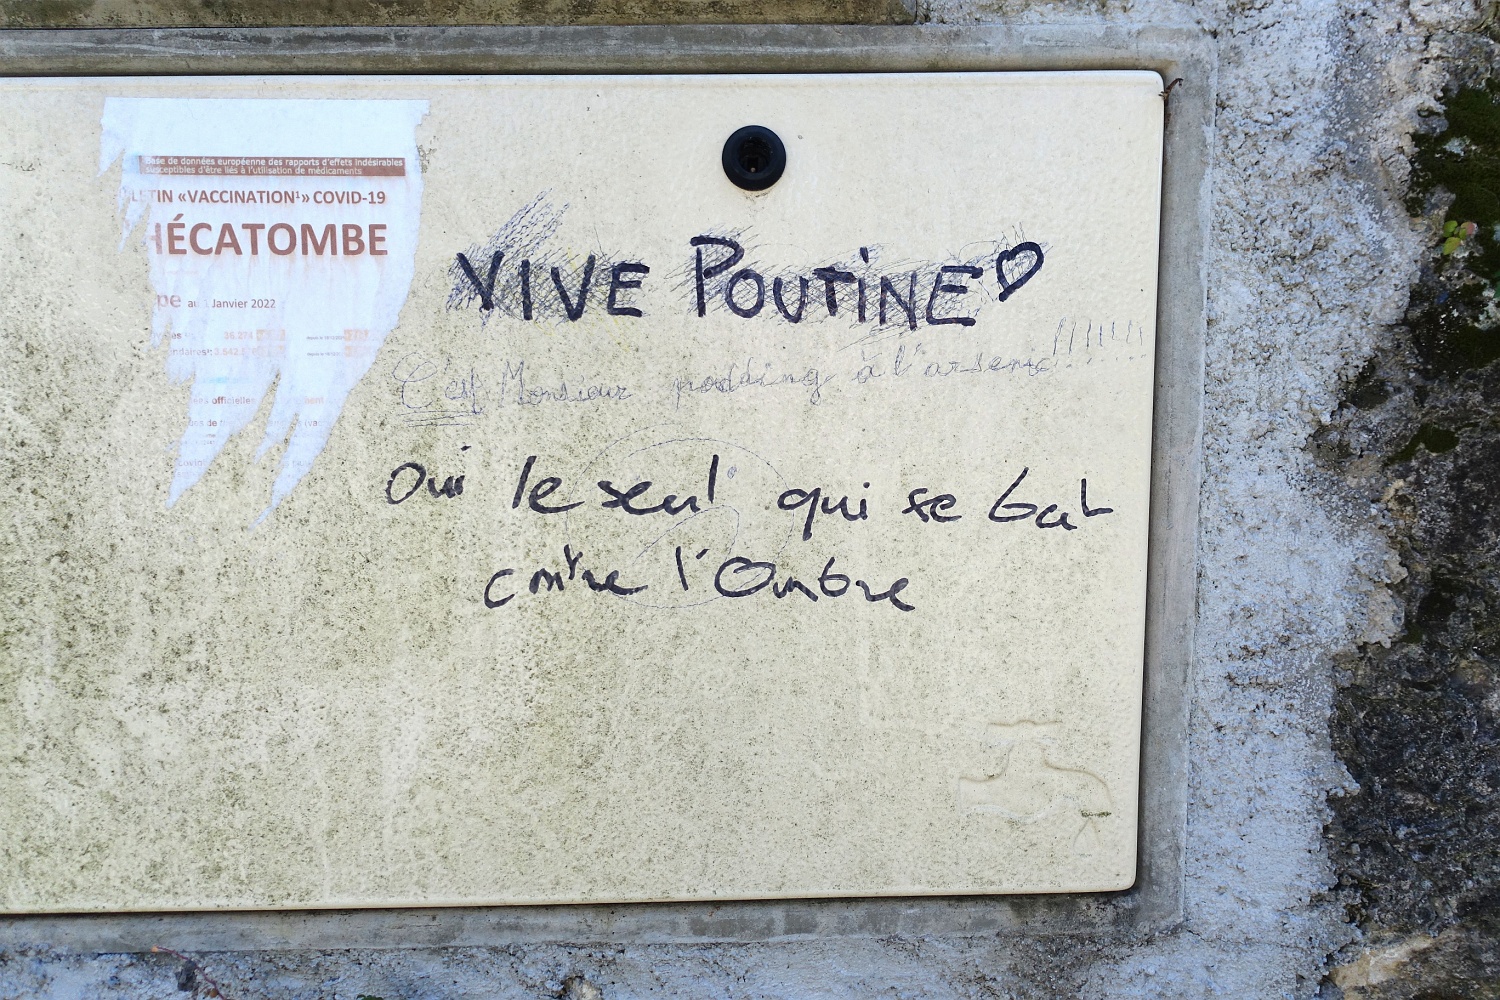 Base de données européenne des rapports d'effets indésirables
susceptibles d'être liés à l'utilisation de médicaments
LETIN «VACCINATION¹» COVID-19
HÉCATOMBE
pe au 1 Janvier 2022
36.274
3.642.
es officielles
VIVE POUTINE♡
C'est Monsieur podding à l'arsenic!!!!!!!
Oui le seul qui se bat
contre l'Ombre